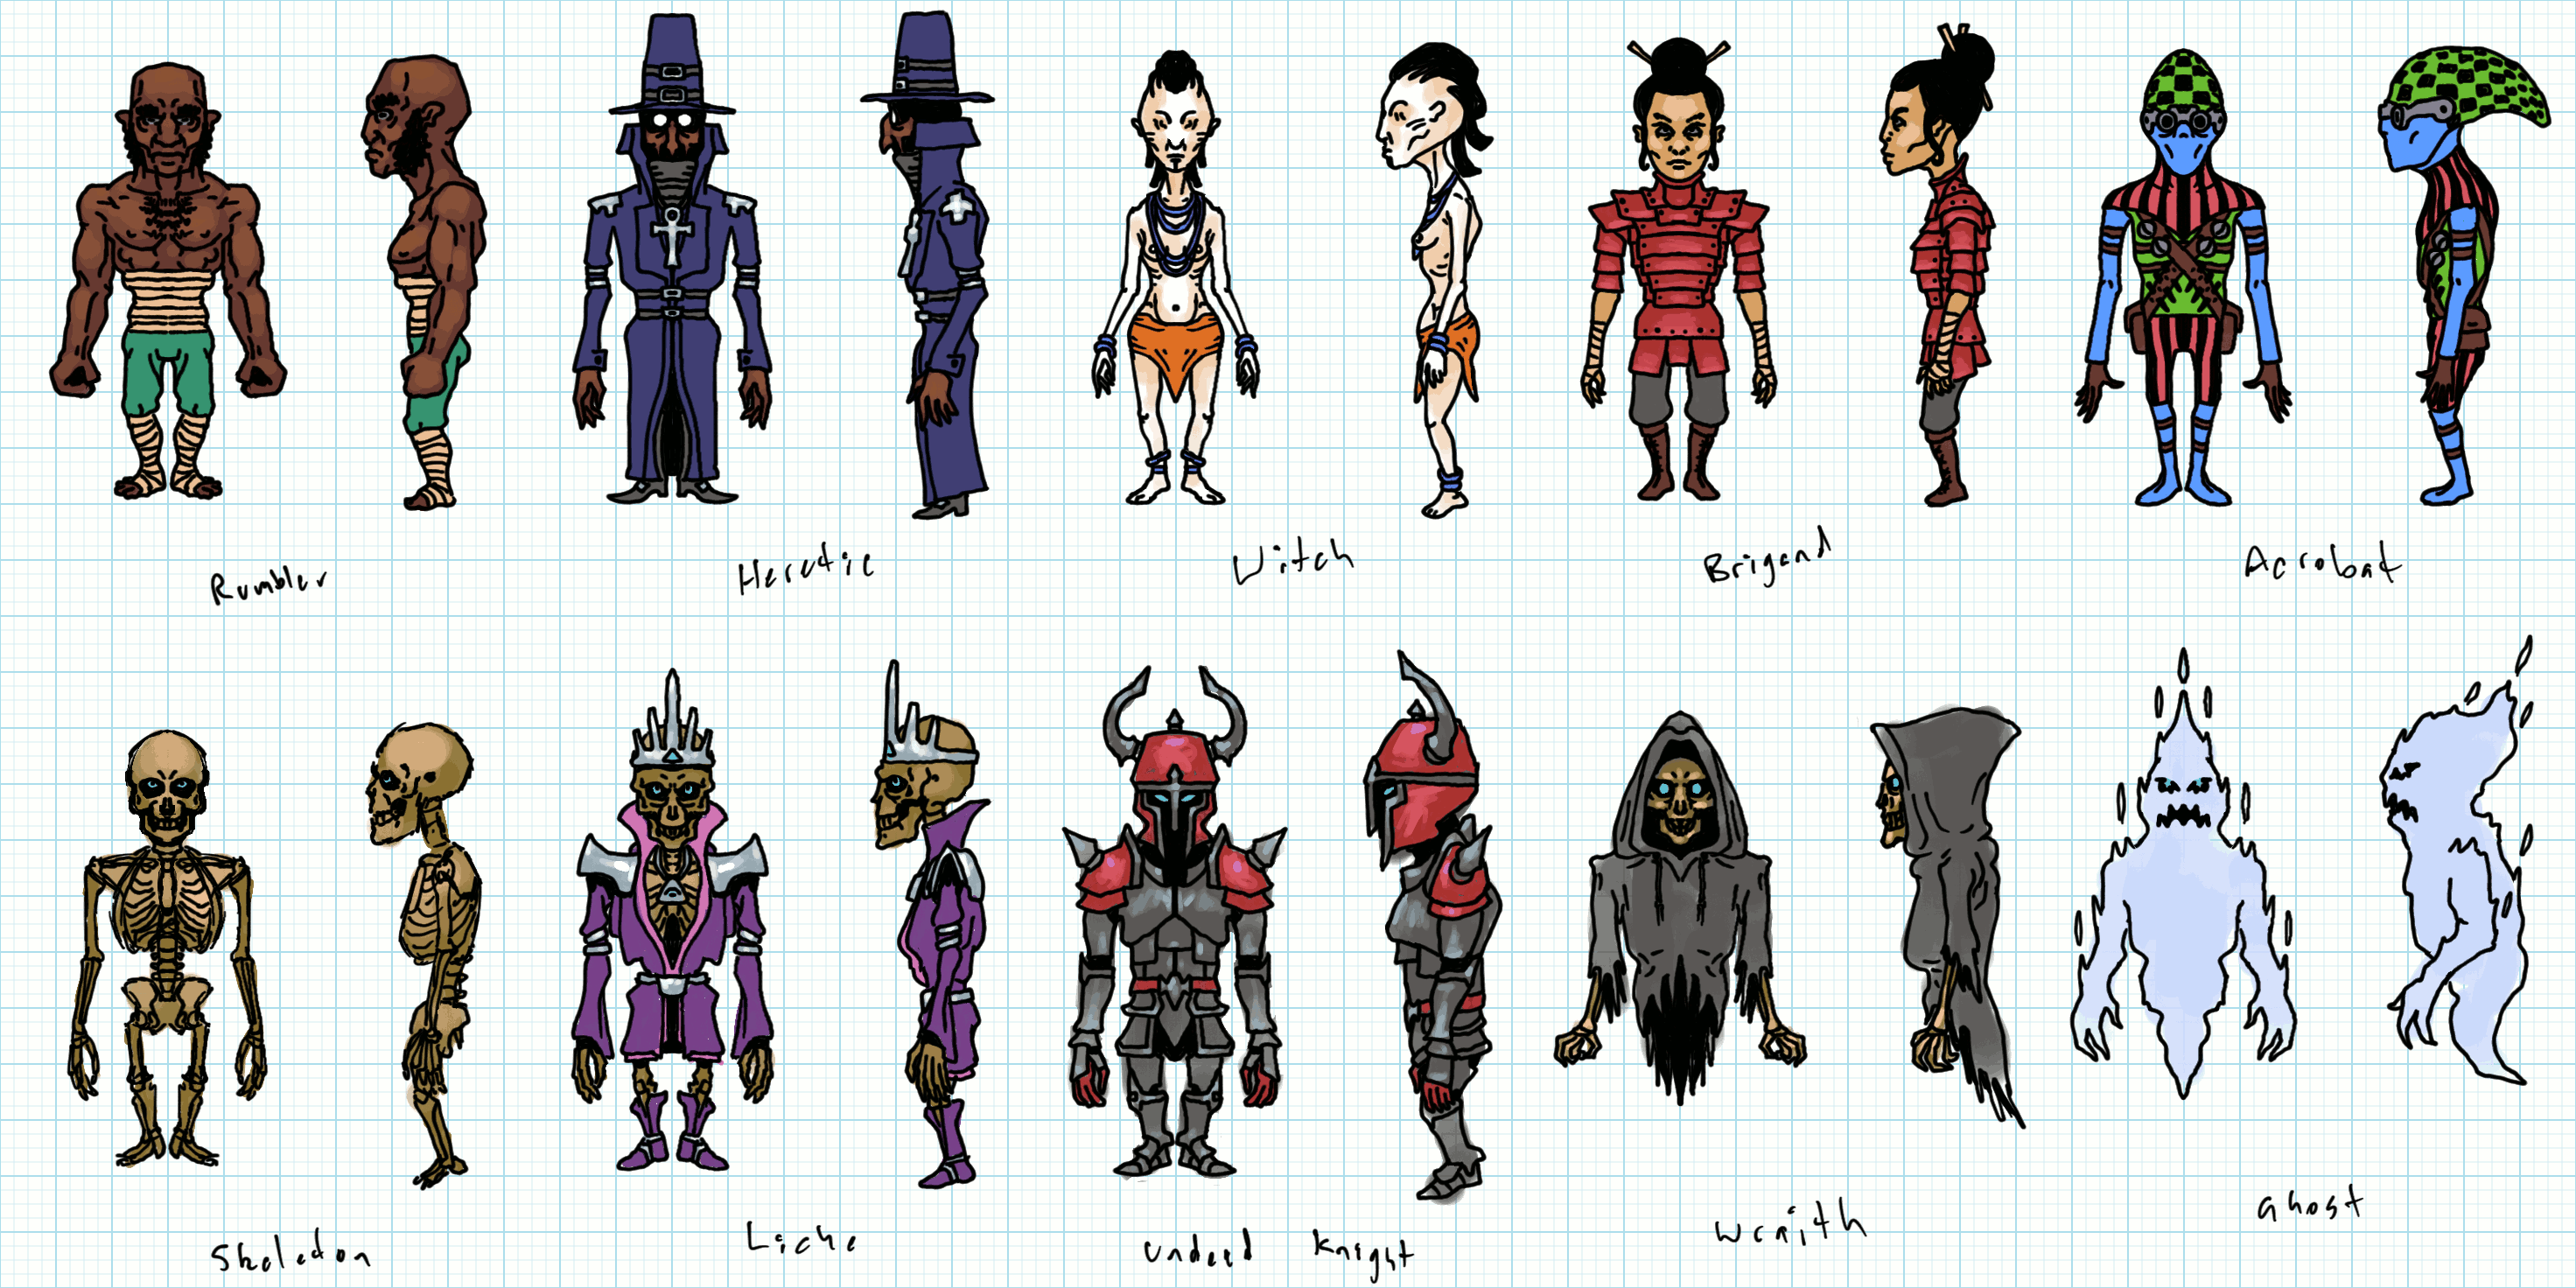 Rumbler
Heretic
Witch
Brigand
Acrobat
Skeleton
Liche
Undead Knight
Wraith
Ghost